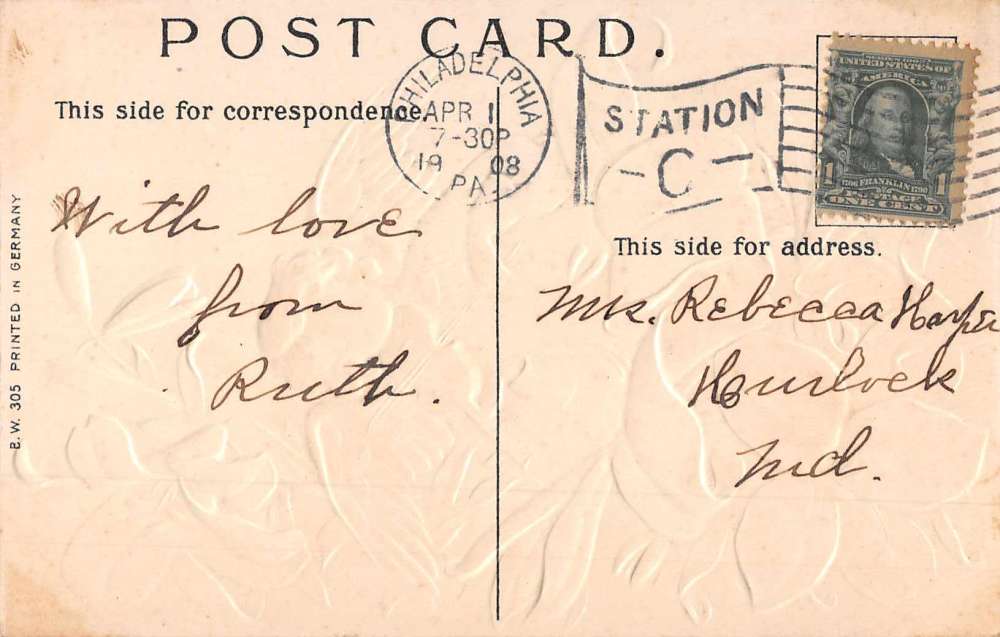 POST CARD.
This side for correspondence.
PHILADELPHIA
APR 1
7-30P
1908
PA.
STATION
-C-
SERIES 1902
UNITED STATES OF
AMERICA
1 1
1706 FRANKLIN 1790
POSTAGE
ONE CENT
With love
from
Ruth.
This side for address.
Mrs. Rebecca Harper
Hurlock
Md.
B.W. 305 PRINTED IN GERMANY